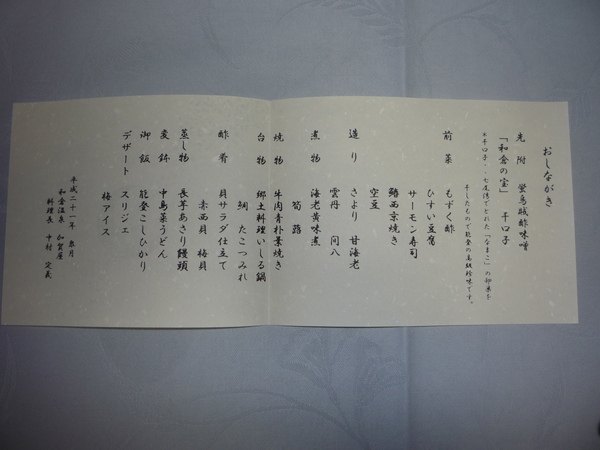 おしながき
先附 蛍烏賊酢味噌
「和倉の宝」 干口子
※干口子・・七尾湾でとれた「なまこ」の卵巣を
干したもので能登の高級珍味です。
前菜 もずく酢
ひすい豆腐
サーモン寿司
鰆西京焼き
空豆
造り さより 甘海老
雲丹 間八
煮物 海老黄味煮
筍 蕗
焼物 牛肉青朴葉焼き
台物 郷土料理いしる鍋
鯛 たこつみれ
酢肴 貝サラダ仕立て
赤西貝 梅貝
蒸し物 長芋あさり饅頭
変鉢 中島菜うどん
御飯 能登こしひかり
デザート スリジェ
梅アイス
平成二十一年 皐月
和倉温泉 加賀屋
料理長 中村 定義